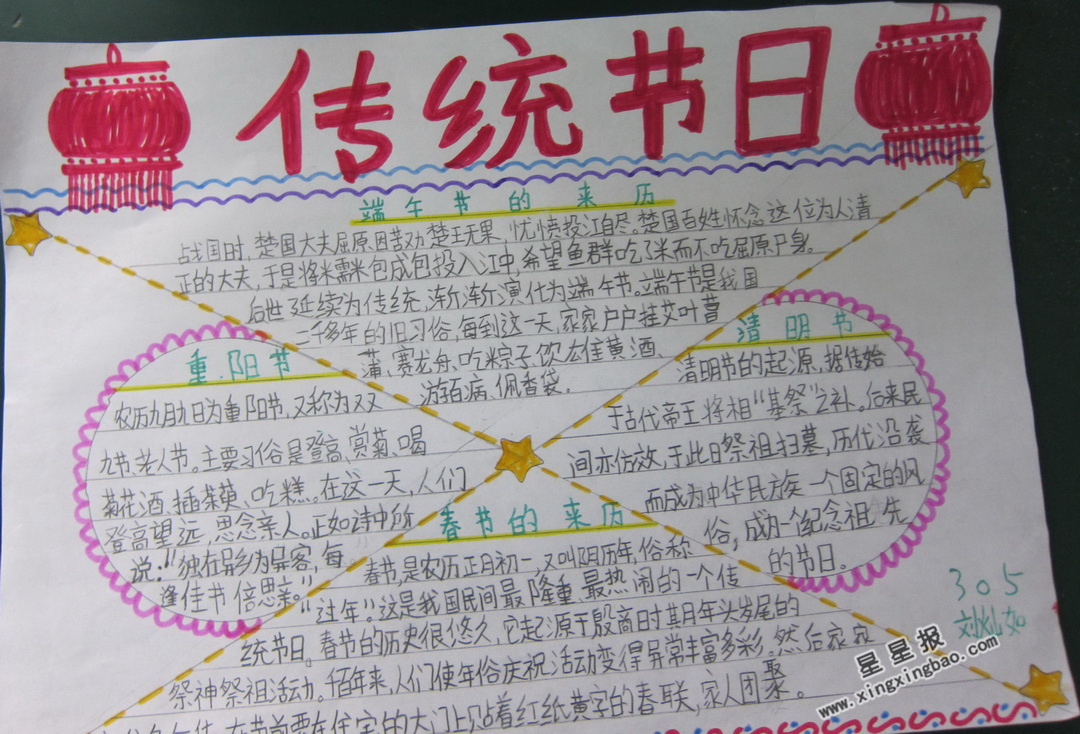 传统节日
端午节的来历
战国时,楚国大夫屈原因苦劝楚王无果,忧愤投江自尽。楚国百姓怀念这位为人清
正的大夫,于是将米需米包成包投入江中,希望鱼群吃了米而不吃屈原尸身。
后世延续为传统,渐渐演化为端午节。端午节是我国
二千多年的旧习俗,每到这一天,家家户户挂艾叶菖
蒲、赛龙舟、吃粽子、饮雄黄酒、
游百病、佩香袋.
重阳节
农历九月九日为重阳节,又称为双
九节,老人节。主要习俗是登高,赏菊,喝
菊花酒,插茱萸、吃糕。在这一天,人们
登高望远,思念亲人。正如诗中所
说:"独在异乡为异客,每
逢佳节倍思亲。"
清明节
清明节的起源,据传始
于古代帝王将相"墓祭"之补。后来民
间亦仿效,于此日祭祖扫墓,历代沿袭
而成为中华民族一个固定的风
俗,成为一个纪念祖先
的节日。
春节的来历
春节,是农历正月初一,又叫阴历年,俗称
"过年"。这是我国民间最隆重、最热闹的一个传
统节日。春节的历史很悠久,它起源于殷商时期年头岁尾的
祭神祭祖活动。千百年来,人们使年俗庆祝活动变得异常丰富多彩。然后家家
在节前要在住宅的大门上贴着红纸黄字的春联,家人团聚。
305
刘灿如
星星报
www.xingxingbao.com